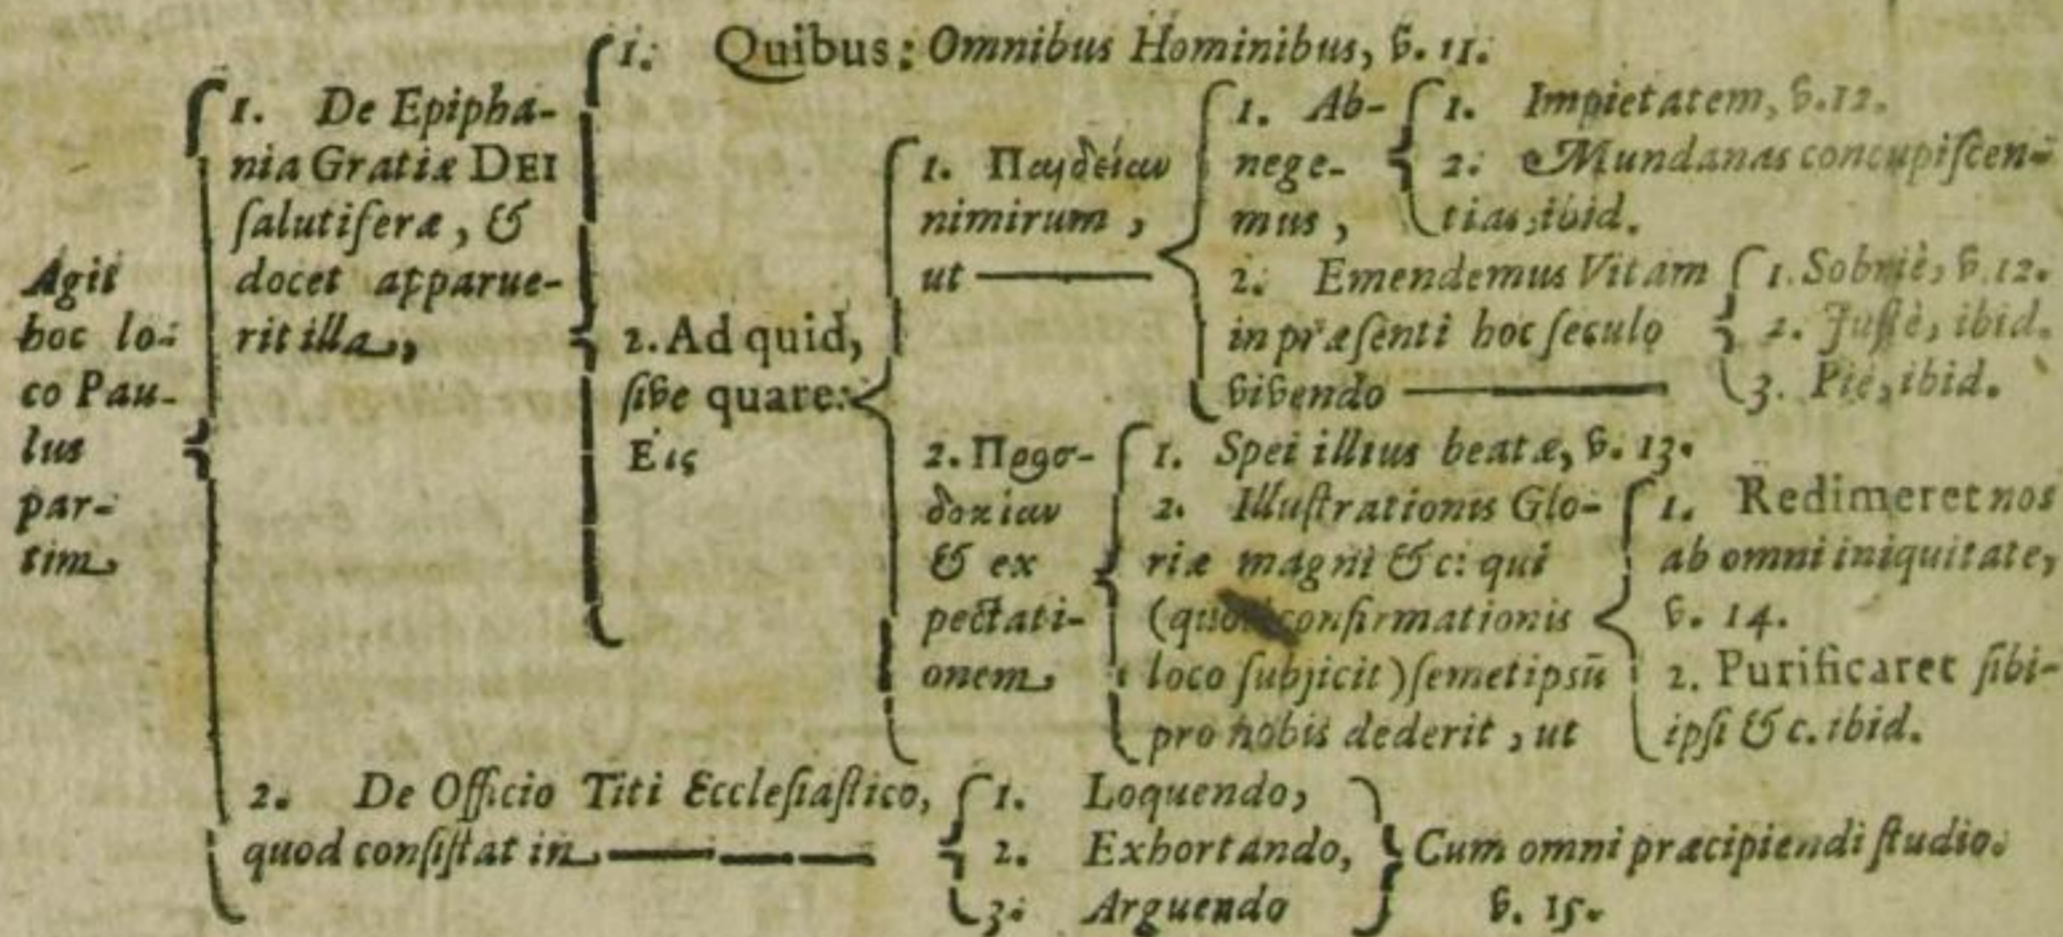 Agit
hoc lo-
co Pau-
lus
par-
tim
1. De Epipha-
nia Gratiæ DEI
ſalutiferæ, &
docet apparue-
rit illa,
1. Quibus: Omnibus Hominibus, v. 11.
2. Ad quid,
ſive quare:
Εἰς
1. Παιδείαν
nimirum,
ut
1. Ab-
nege-
mus,
1. Impietatem, v. 12.
2. Mundanas concupiſcen-
tias, ibid.
2. Emendemus Vitam
in præſenti hoc ſeculo
vivendo
1. Sobriè, v. 12.
2. Juſtè, ibid.
3. Piè, ibid.
2. Προσ-
δοκίαν
& ex
pectati-
onem
1. Spei illius beatæ, v. 13.
2. Illuſtrationis Glo-
riæ magni &c: qui
(quod confirmationis
loco ſubjicit) ſemetipsū
pro nobis dederit, ut
1. Redimeret nos
ab omni iniquitate,
v. 14.
2. Purificaret ſibi-
ipſi &c. ibid.
2. De Officio Titi Eccleſiaſtico,
quod conſiſtat in
1. Loquendo,
2. Exhortando,
3. Arguendo
Cum omni præcipiendi ſtudio.
v. 15.